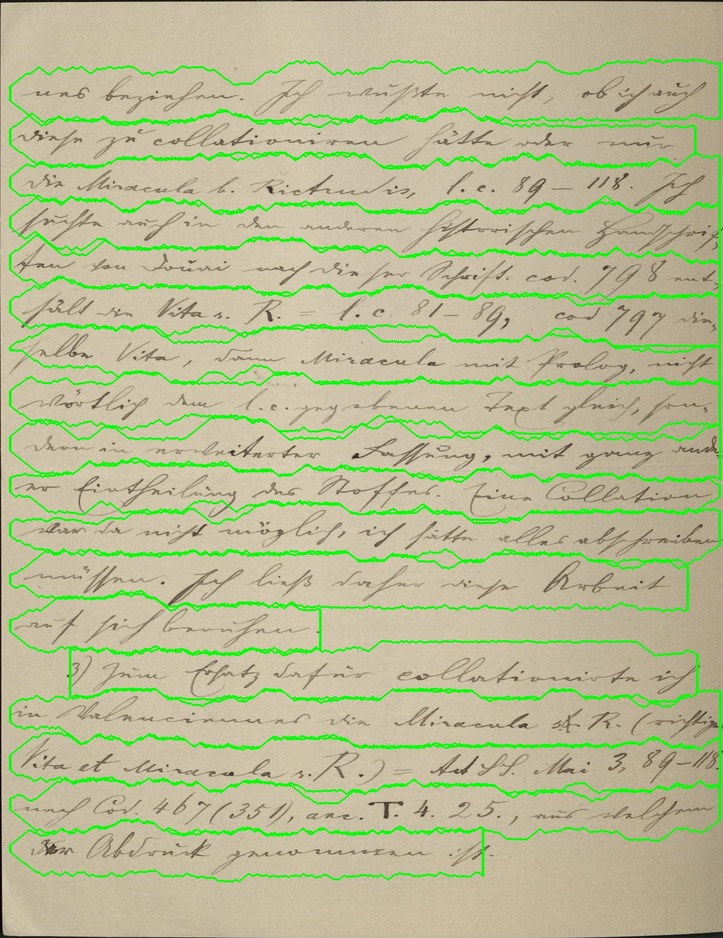 nes beziehen. Ich wußte nicht, ob ich auch
diese zu collationiren hätte oder nur
die Miracula b. Rictrudis, l. c. 89 – 118. Ich
suchte auch in den anderen historischen Handschrif-
ten von Douai nach dieser Schrift. cod. 798 ent-
hält die Vita s. R. = l. c. 81 – 89, cod 797 die-
selbe Vita, dann Miracula mit Prolog, nicht
wörtlich dem l. c. gegebenen Text gleich, son-
dern in erweiterter Fassung, mit ganz ande-
er Eintheilung des Stoffes. Eine Collation
war da nicht möglich, ich hätte alles abschreiben
müssen. Ich ließ daher diese Arbeit
auf sich beruhen.
3) Zum Ersatz dafür collationirte ich
in Valenciennes die Miracula R. (richtiger
Vita et Miracula s. R.) = Act SS. Mai 3, 89–118.
nach Cod. 467 (351), anc. T. 4. 25., aus welchem
der Abdruck genommen ist.